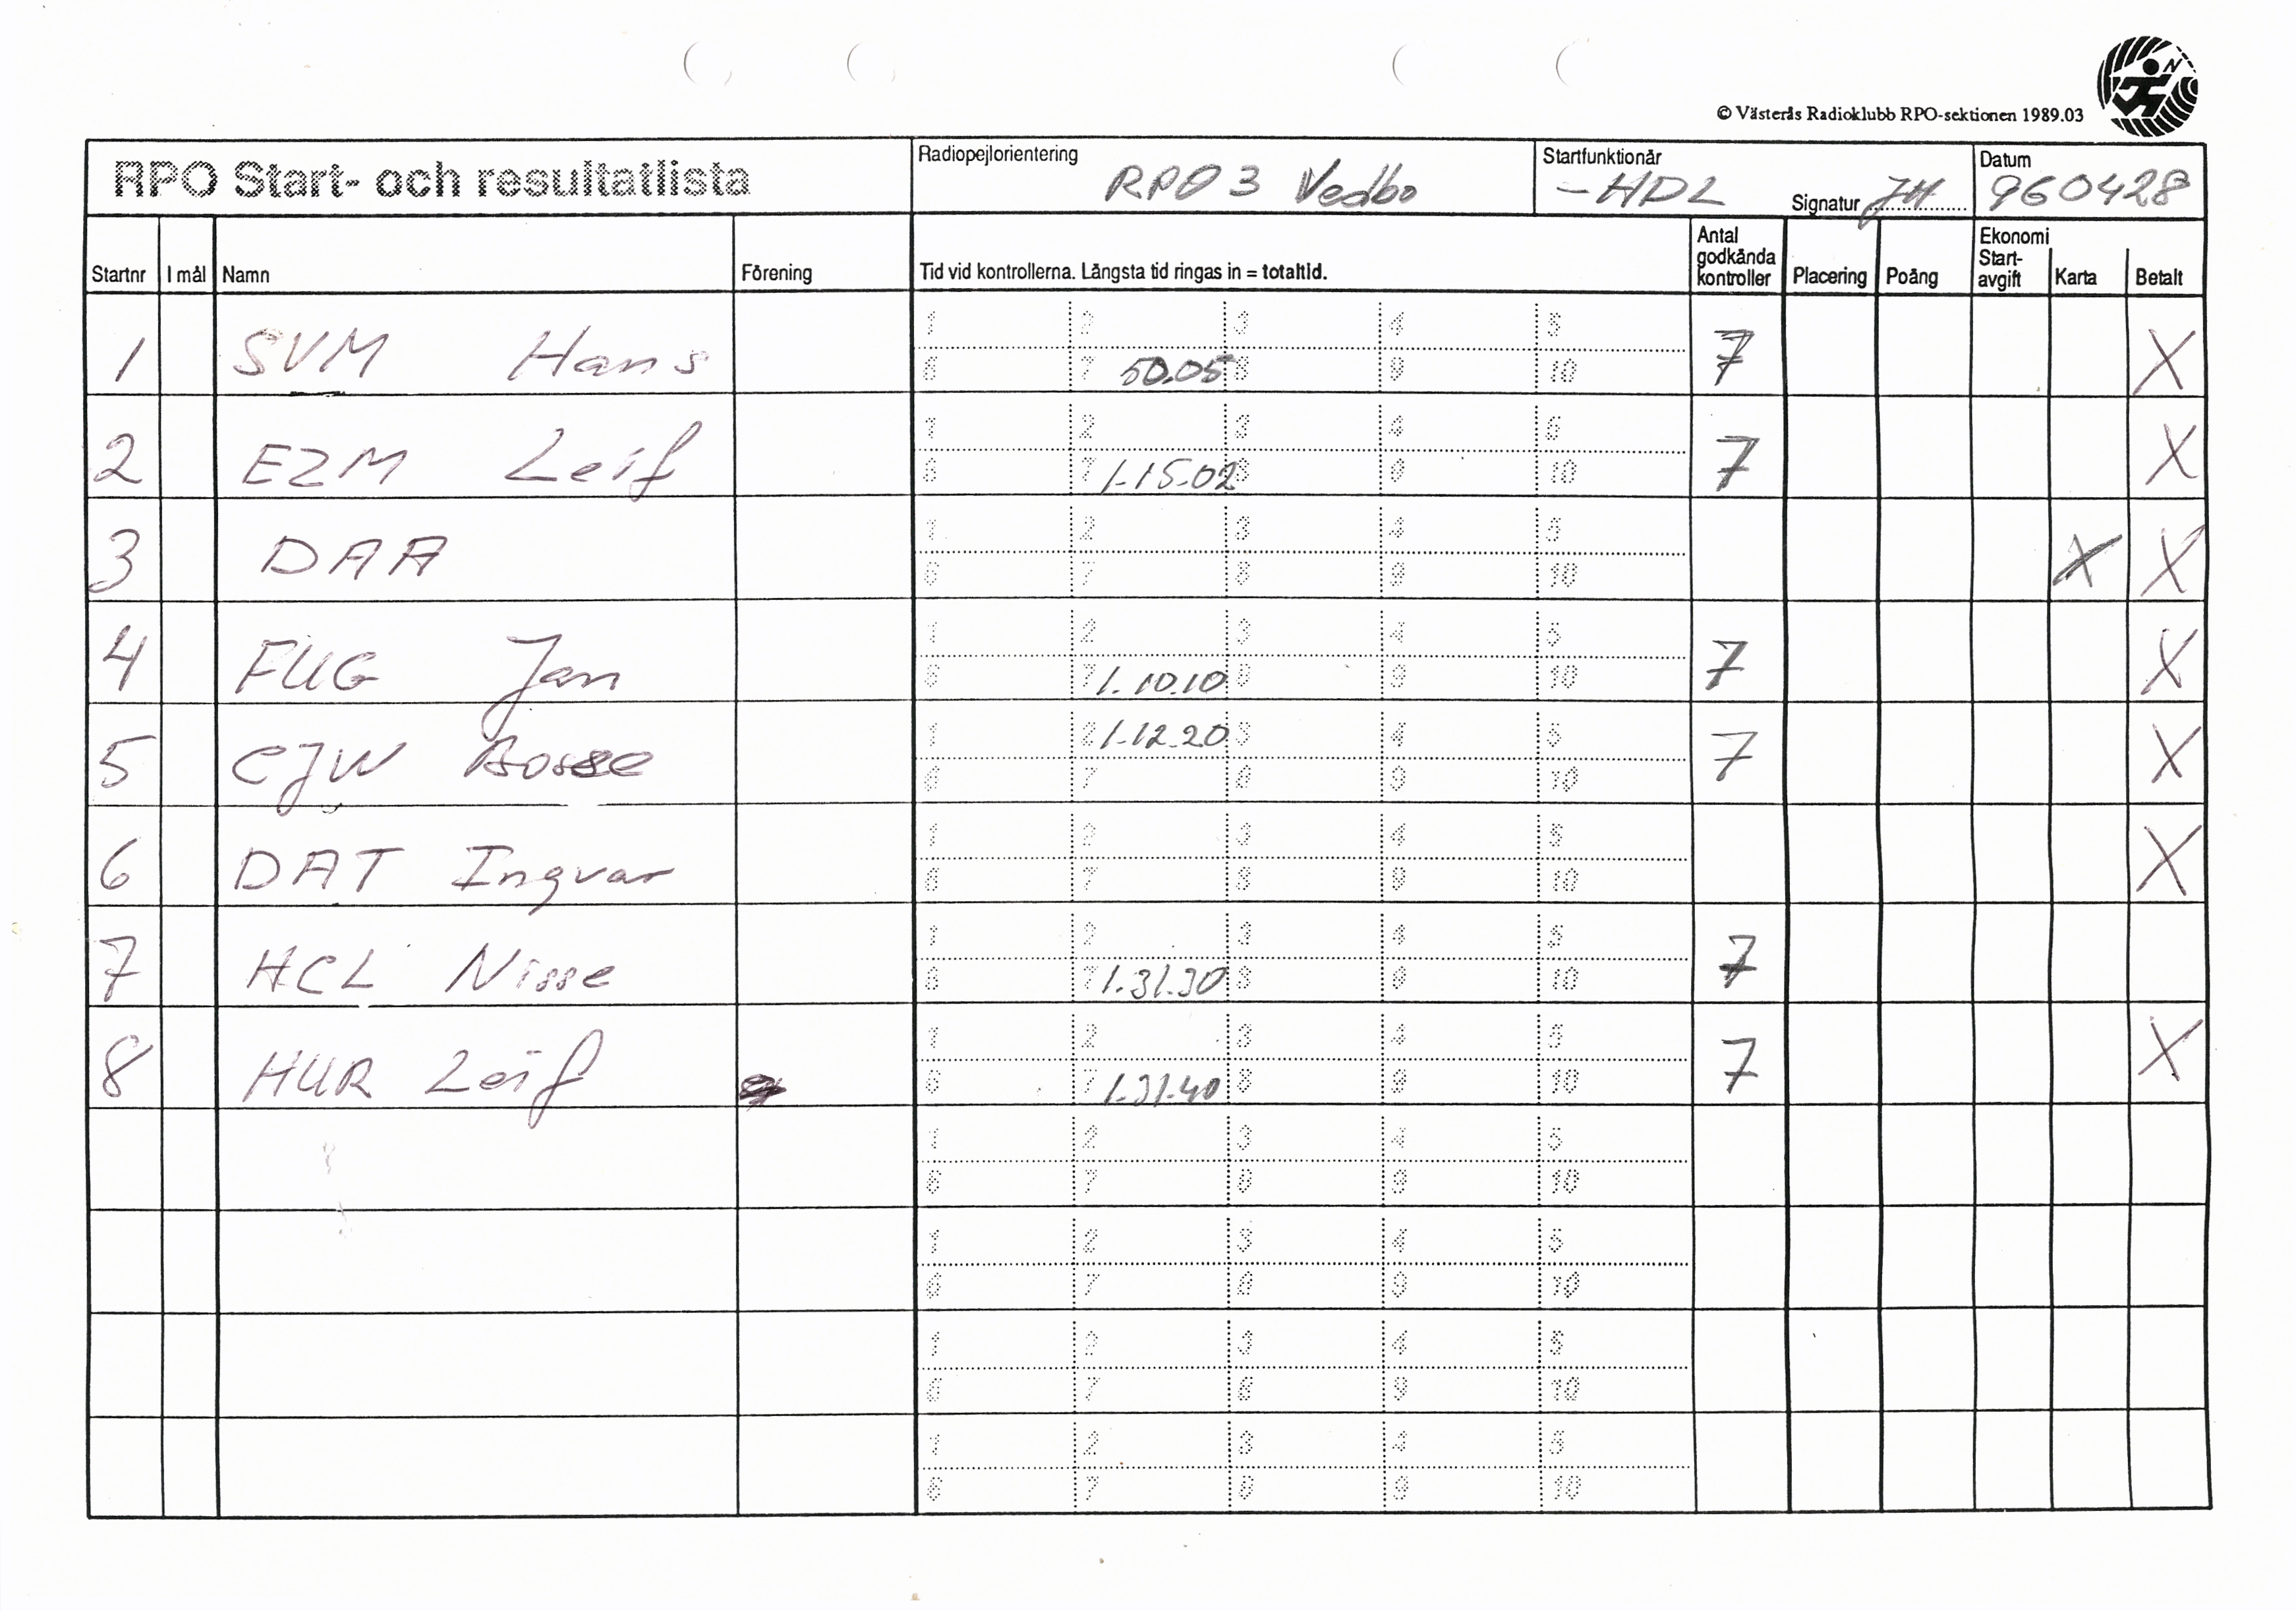 © Västerås Radioklubb RPO-sektionen 1989.03
N
RPO Start- och resultatlista
Radiopejlorientering RPO 3 Vedbo
Startfunktionär -HDL Signatur JH
Datum 960428
Startnr I mål Namn Förening Tid vid kontrollerna. Längsta tid ringas in = totaltid. Antal godkända kontroller Placering Poäng Ekonomi Start-avgift Karta Betalt
1 2 3 4 5
1 SVM Hans 7 X
6 7 50.05 8 9 10
1 2 3 4 5
2 EZM Leif 7 X
6 7 1.15.02 8 9 10
1 2 3 4 5
3 DAA X X
6 7 8 9 10
1 2 3 4 5
4 FUG Jan 7 X
6 7 1.10.10 8 9 10
1 2 1.12.20 3 4 5
5 CJW Bosse 7 X
6 7 8 9 10
1 2 3 4 5
6 DAT Ingvar X
6 7 8 9 10
1 2 3 4 5
7 HCL Nisse 7
6 7 1.31.30 8 9 10
1 2 3 4 5
8 HUR Leif 7 X
6 7 1.31.40 8 9 10
1 2 3 4 5
6 7 8 9 10
1 2 3 4 5
6 7 8 9 10
1 2 3 4 5
6 7 8 9 10
1 2 3 4 5
6 7 8 9 10